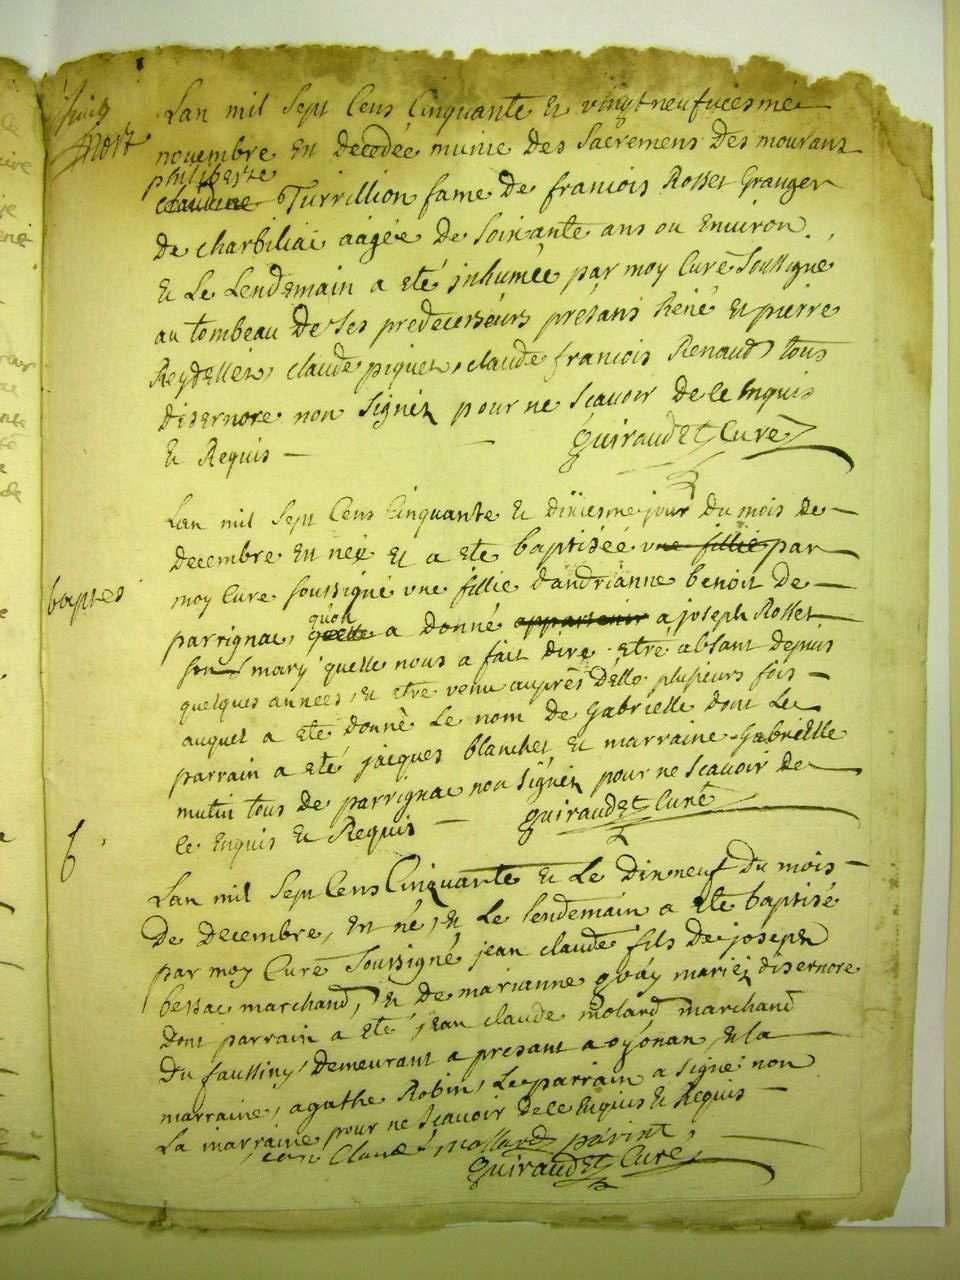 mort
Lan mil Sept Cens Cinquante et vingt neufviesme
novembre est decedée munie des Sacremens des mourans
philiberte
claudine Turrillion fame de francois Rosset Granger
de charbiliac aagée de soixante ans ou Environ
et Le Lendemain a eté inhumée par moy Curé Soussigné
au tombeau de ses predecesseurs présans René et pierre
Reydellet, claude piquet, claude francois Renaud, tous
disernore non signéz pour ne scavoir de ce Enquis
et Requis
Guiraudet Curé
baptes
Lan mil Sept Cens Cinquante et dixiesme jour du mois de
decembre est neé et a eté baptiséé une fillie par
moy Curé soussigné une fillie dandrianne benoit de
quon
parrignac, quelle a donné appartenir a joseph Rosset
son mary quelle nous a fait dire etre absant depuis
quelques années, et etre venu auprès dello plusieurs fois
auquel a eté donné Le nom de Gabrielle dont Le
parrain a eté jacques blanchet et marraine Gabrielle
mutin tous de parrignac non signéz pour ne scavoir de
ce Enquis et Requis
Guiraudet Curé
Lan mil Sept Cens Cinquante et Le dixneuf du mois
de decembre, est né, et Le lendemain a eté baptisé
par moy Curé Soussigné jean claude fils de joseph
bessac marchand, et de marianne goáy mariéz disernore
dont parrain a eté jean claude molard marchand
du faussiny, demeurant a presant a oyonan, et la
marraine, agathe Robin, Le parrain a signé non
La marraine pour ne scavoir de ce Enquis et Requis
jean Claude mollard parint
Guiraudet Curé